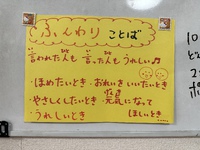 ふわり ことば
言われた人も 言った人も うれしい♪
・ほめたいとき ・お礼をいいたいとき
・やさしくしたいとき ・元気になって
・うれしいとき ほしいとき
10